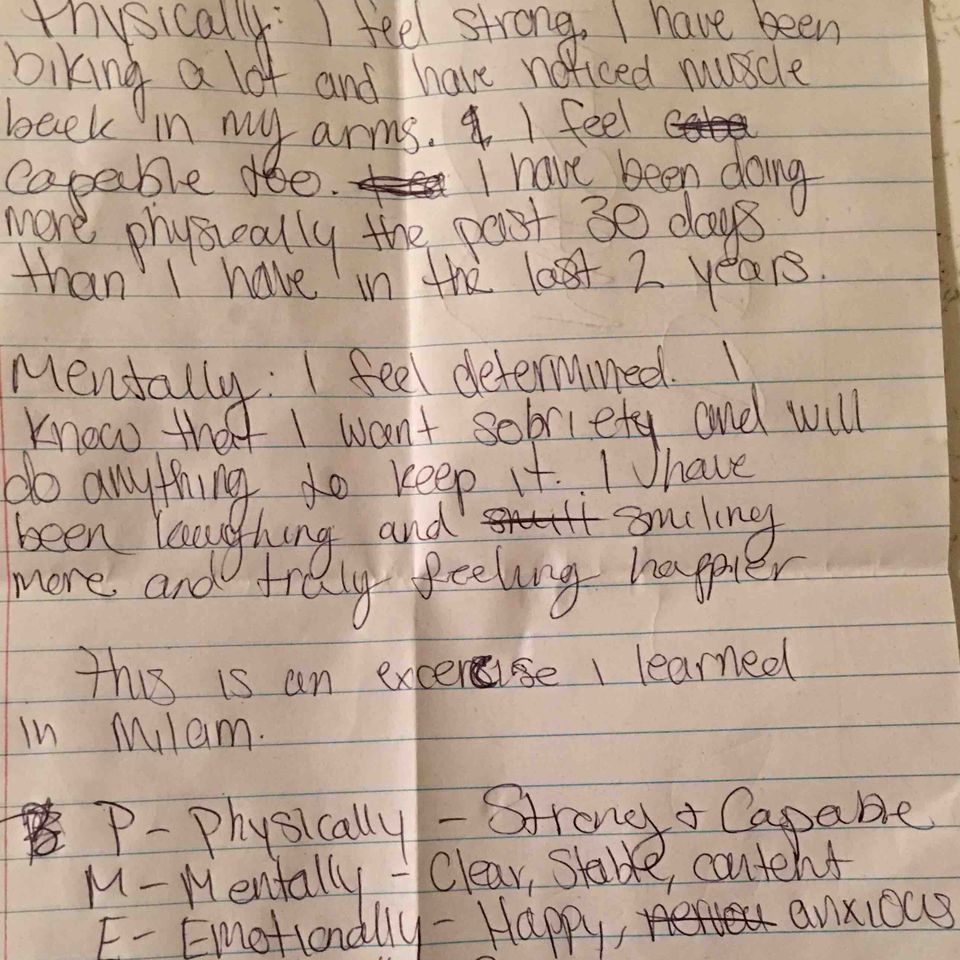 Physically: I feel strong. I have been
biking a lot and have noticed muscle
back in my arms. I feel
capable too. I have been doing
more physically the past 30 days
than I have in the last 2 years.
Mentally: I feel determined. I
know that I want sobriety and will
do anything to keep it. I have
been laughing and smiling
more and truly feeling happier
This is an excercise I learned
in Milam.
P - Physically - Strong + Capable
M - Mentally - Clear, Stable, content
E - Emotionally - Happy, anxious